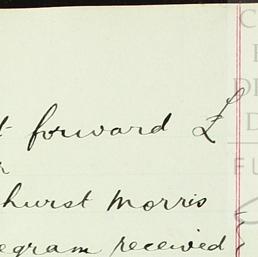 t forward £
r
hurst Morris
egram received